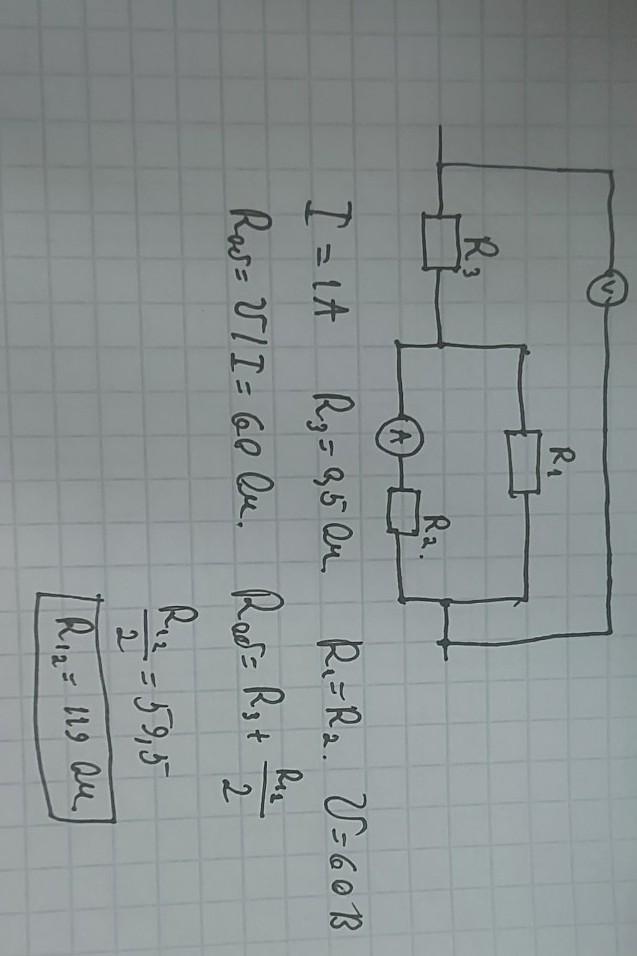 V
R₃
R₁
A
R₂.
I = 1A R₃ = 0,5 Ом. R₁ = R₂. U = 60 В
Rоб = U / I = 60 Ом. Rоб = R₃ + R₁₂/2
R₁₂/2 = 59,5
R₁₂ = 119 Ом.